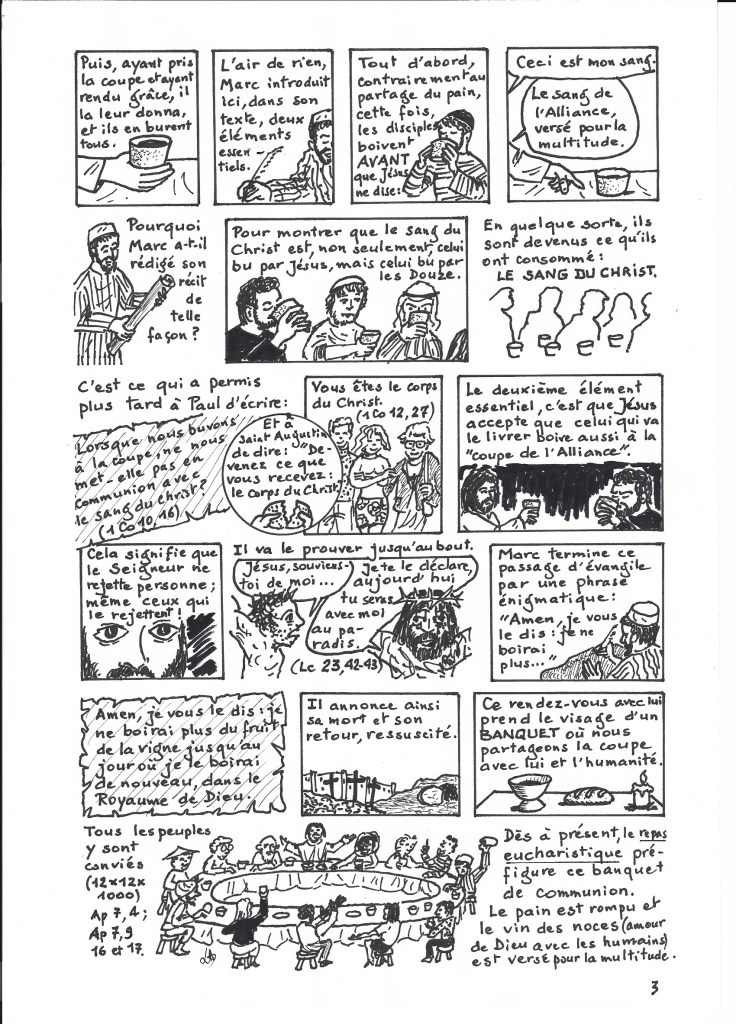 Puis, ayant pris
la coupe et ayant
rendu grâce, il
la leur donna,
et ils en burent
tous.
L'air de rien,
Marc introduit
ici, dans son
texte, deux
éléments
essen-
tiels.
Tout d'abord,
contrairement au
partage du pain,
cette fois,
les disciples
boivent
AVANT
que Jésus
ne dise:
Ceci est mon sang.
Le sang de
l'Alliance,
versé pour la
multitude.
Pourquoi
Marc a-t-il
rédigé son
récit
de
telle
façon?
Pour montrer que le sang du
Christ est, non seulement, celui
bu par Jésus, mais celui bu par
les Douze.
En quelque sorte, ils
sont devenus ce qu'ils
ont consommé:
LE SANG DU CHRIST.
C'est ce qui a permis
plus tard à Paul d'écrire:
Lorsque nous buvons
à la coupe, ne nous
met-elle pas en
communion avec
le sang du Christ?
(1 Co 10, 16)
Et à
Saint Augustin
de dire: "De-
venez ce que
vous recevez:
le corps du Christ"
Vous êtes le corps
du Christ.
(1 Co 12, 27)
Le deuxième élément
essentiel, c'est que Jésus
accepte que celui qui va
le livrer boive aussi à la
"coupe de l'Alliance".
Cela signifie que
le Seigneur ne
rejette personne;
même ceux qui
le rejettent!
Il va le prouver jusqu'au bout.
Jésus, souviens-
toi de moi...
Je te le déclare,
aujourd'hui
tu seras
avec moi
au pa-
radis.
(Lc 23, 42-43)
Marc termine ce
passage d'évangile
par une phrase
énigmatique:
"Amen, je vous
le dis: je ne
boirai
plus..."
Amen, je vous le dis: je
ne boirai plus du fruit
de la vigne jusqu'au
jour où je le boirai
de nouveau, dans le
Royaume de Dieu.
Il annonce ainsi
sa mort et son
retour, ressuscité.
Ce rendez-vous avec lui
prend le visage d'un
BANQUET où nous
partageons la coupe
avec lui et l'humanité.
Tous les peuples
y sont
conviés
(12x12x
1000)
Ap 7, 4;
Ap 7, 9
16 et 17.
Dès à présent, le repas
eucharistique pré-
figure ce banquet
de communion.
Le pain est rompu et
le vin des noces (amour
de Dieu avec les humains)
est versé pour la multitude.
3